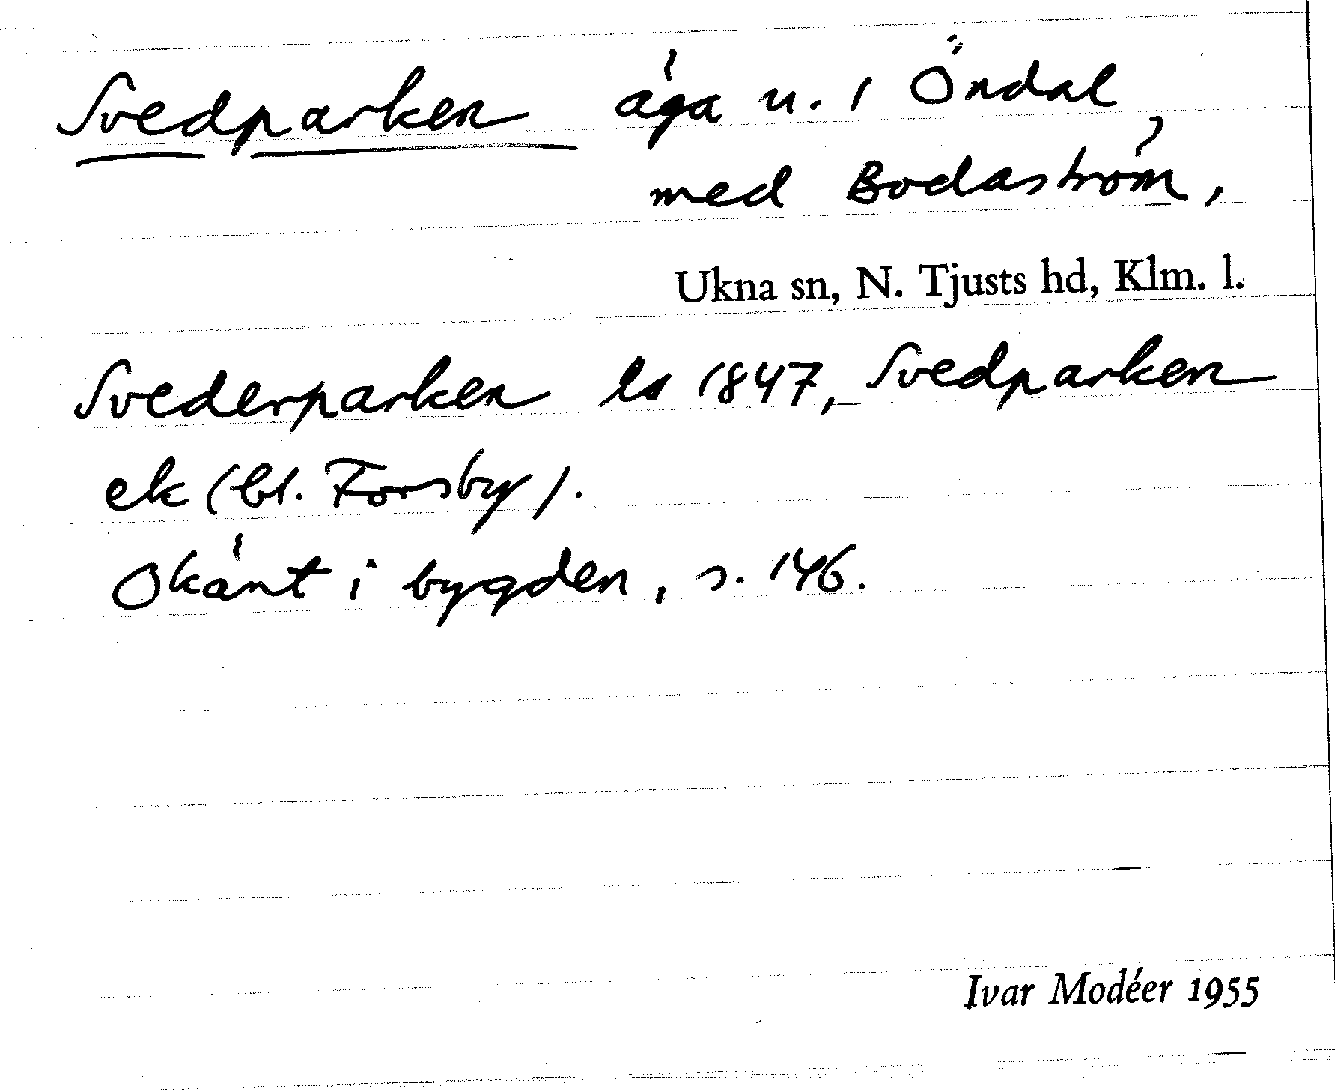 Svedparken äga u. 1 Öndal
med Bodaström,
Ukna sn, N. Tjusts hd, Klm. l.
Svederparken ls 1847, Svedparken
ek (bl. Forsby).
Okänt i bygden, s. 146.
Ivar Modéer 1955